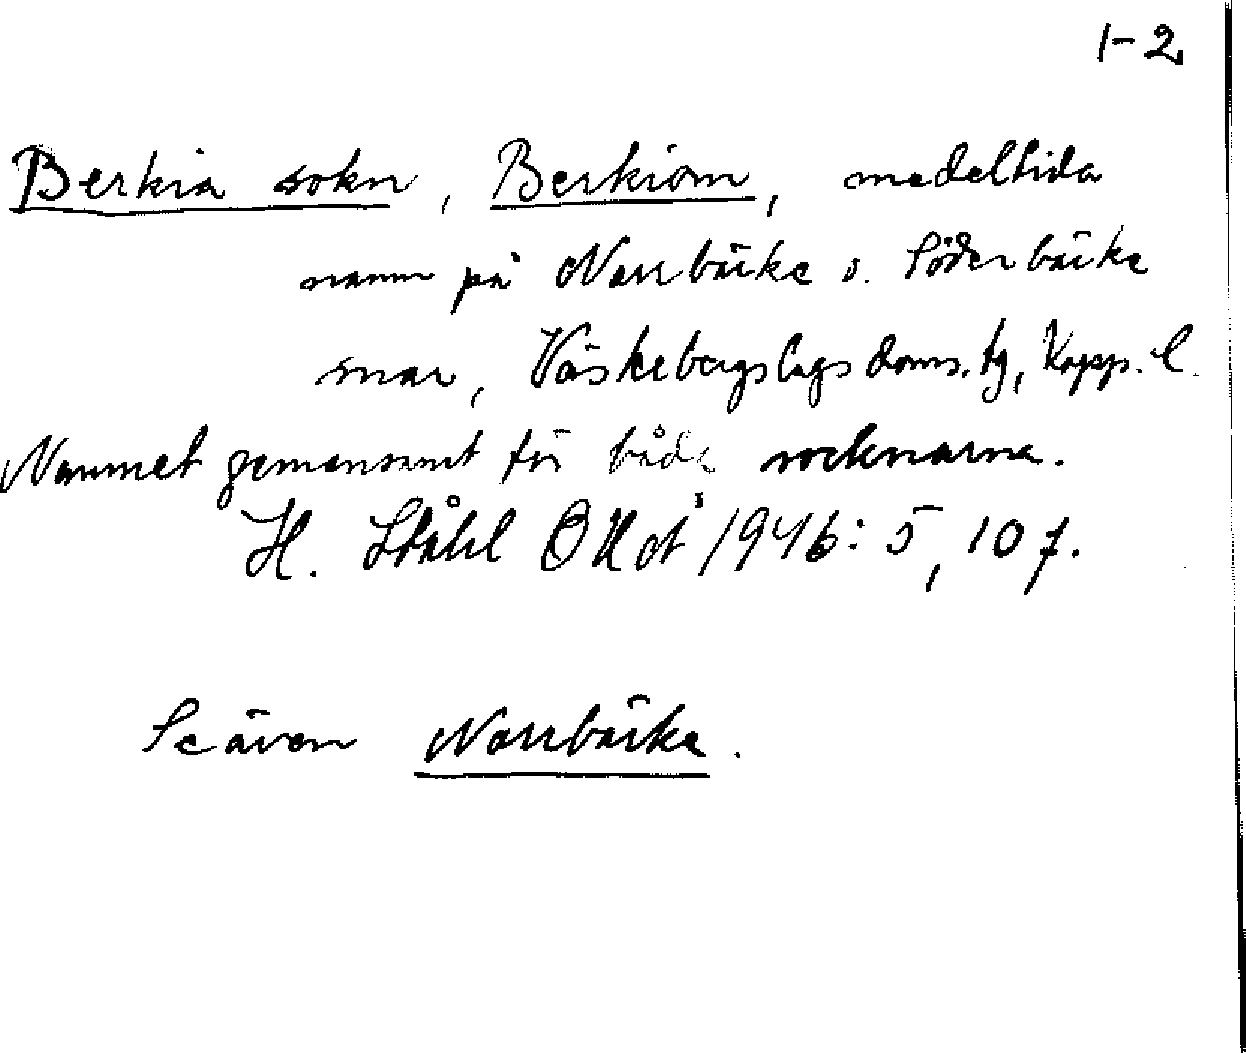 1-2
Berkia sokn, Berkiom, medeltida
namn på Norrbärke o. Söderbärke
snar, Västerbergslags doms. tg, Kopp. l.
Namnet gemensamt för båda socknarna.
H. Ståhl OUÅ 1946: 5, 107.
Se även Norrbärke.